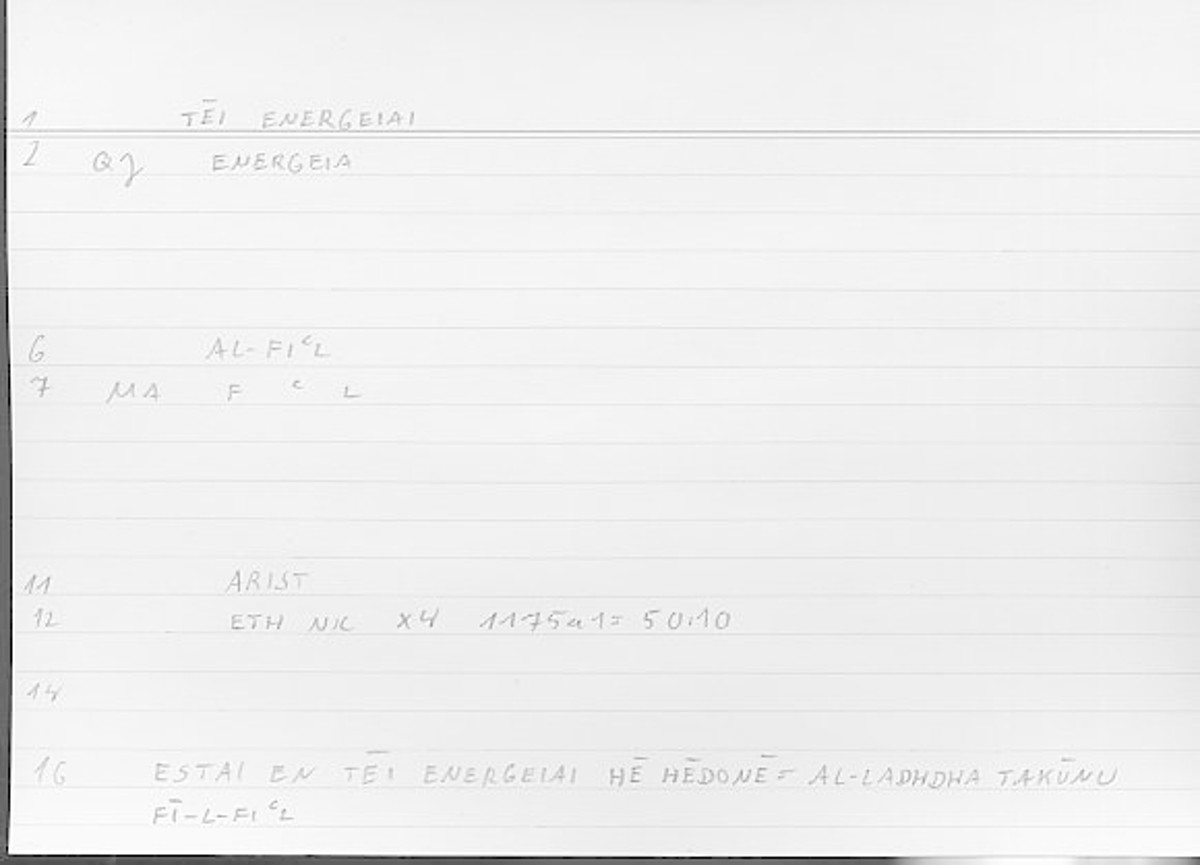 1 TĒI ENERGEIAI
2 QJ ENERGEIA
6 AL-FIᶜL
7 MA F ᶜ L
11 ARIST
12 ETH NIC X4 1175a1= 50.10
14
16 ESTAI EN TĒI ENERGEIAI HĒ HĒDONĒ= AL-LADHDHA TAKŪNU
FĪ-L-FIᶜL